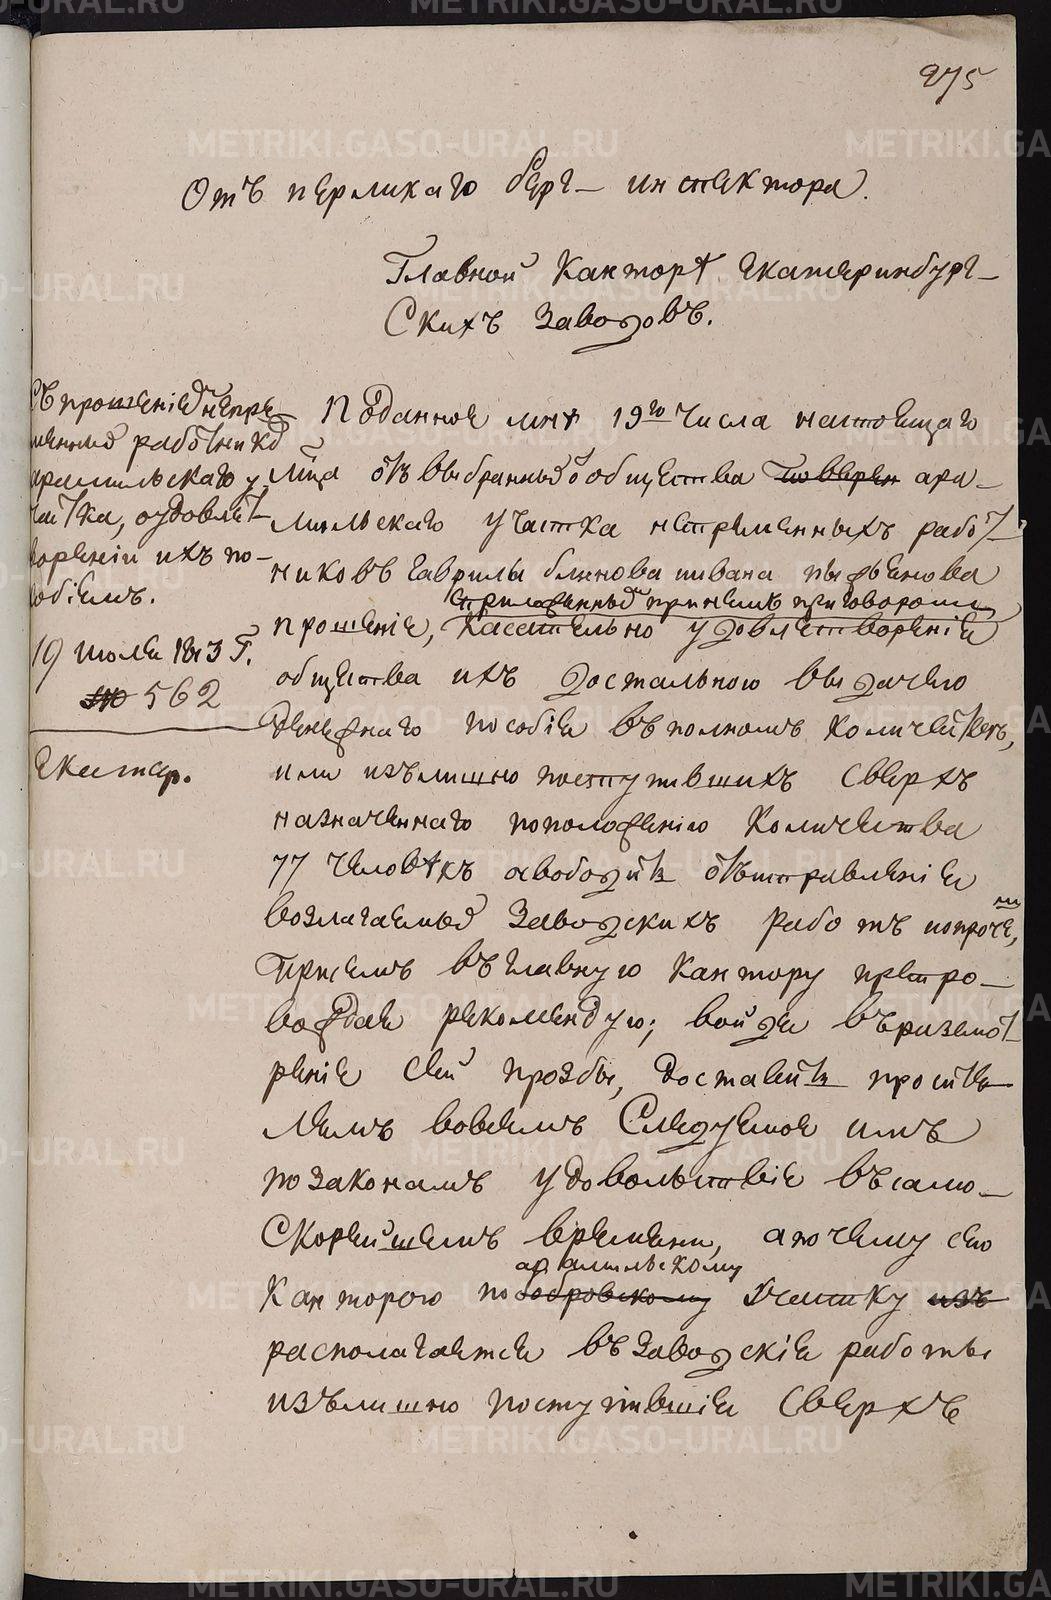 275
Отъ пермскаго берг- инспектора.
Главной Канторѣ Екатеринбург-
Скихъ Заводовъ.
Съ прошеніемъ непре
менныхъ работниковъ
арамильскаго у
частка, о удовлет-
вореніи ихъ по-
собіемъ.
19 июля 1813 Г.
№ 562
Екатер.
Поданное мнѣ 19го числа настоящаго
м-ца отъ выбранныхъ общества поверен ара-
мильскаго участка непременныхъ работ-
никовъ Гаврилы блинова иивана пьянкова
сприложеннымъ принемъ приговоромъ
прошеніе, Касательно удовлетворенія
общества ихъ достальною выдачею
денежнаго пособія вполномъ Количествѣ,
или изълишно поступившихъ Сверхъ
назначеннаго поположенію Количества
77 человѣкъ свободить отъисправленія
возлагаемыхъ Заводскихъ работъ ипрочемъ,
Присемъ въглавную Кантору препро-
вождая рекомендую; войдя въразсмот-
реніе Сей прозбы, доставить просите-
лямъ вовсемъ Следуемое имъ
позаконамъ удовольствіе въсамо-
Скорейшемъ времени, апочему сею
арамильскому
Канторою по бобровскому Участку изъ
располагаются въЗаводскія работы
изълишно поступившія Сверхъ
METRIKI.GASO-URAL.RU